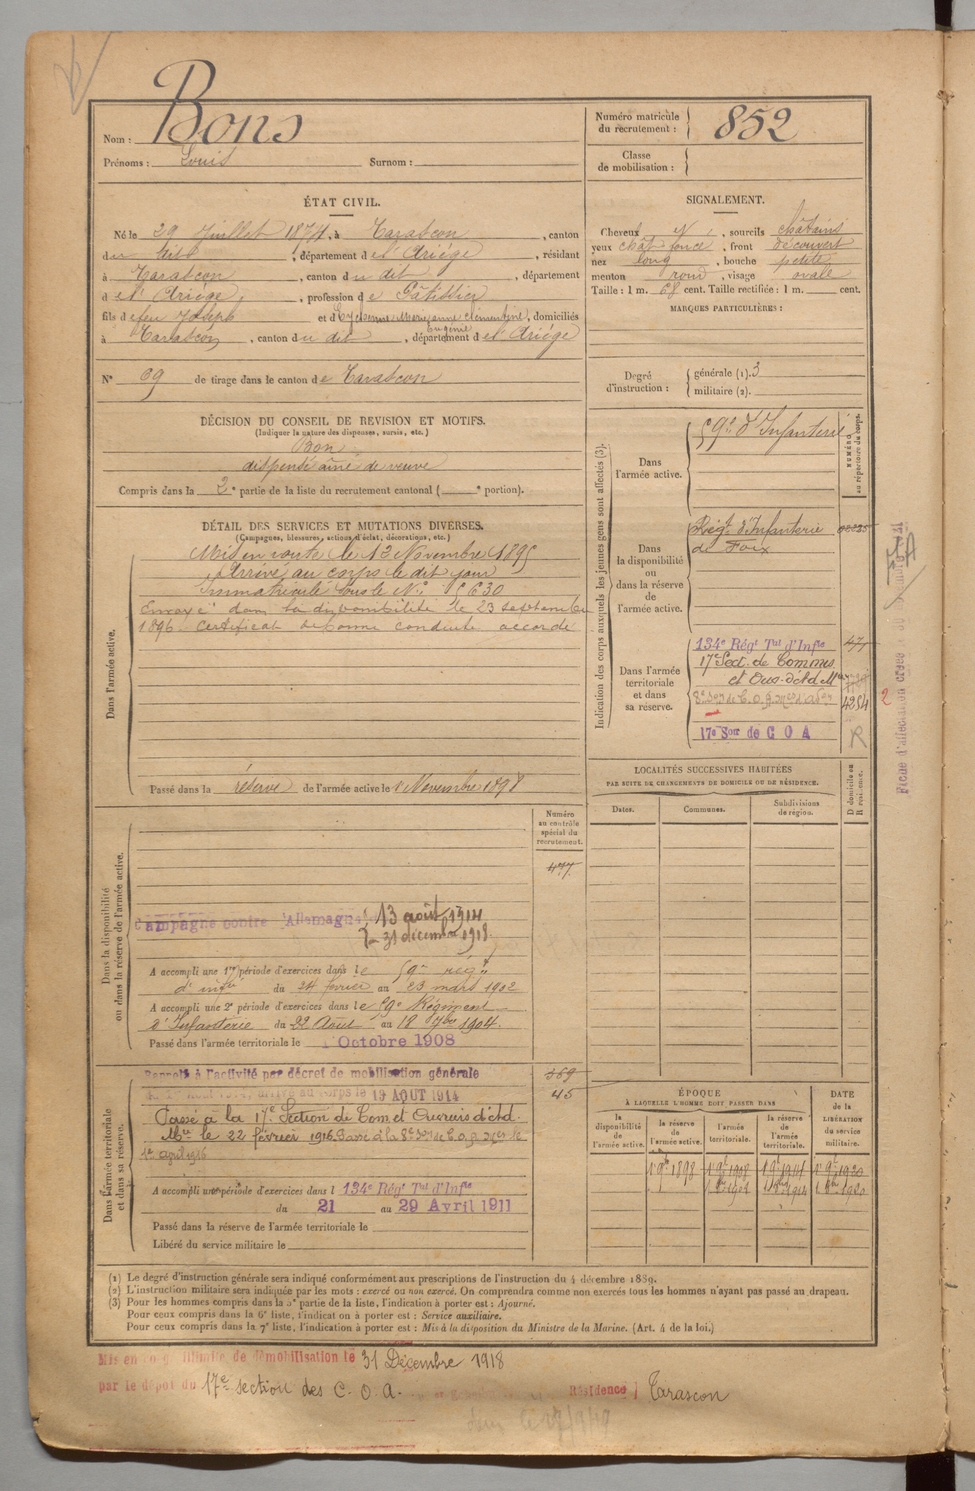 Nom : Bons
Prénoms : Louis Surnom :
Numéro matricule du recrutement : 852
Classe de mobilisation :
ÉTAT CIVIL.
Né le 29 Juillet 1874, à Tarascon, canton
du dit, département de l'Ariège, résidant
à Tarascon, canton du dit, département
de l'Ariège, profession de Pâtissier
fils de feu Joseph et d'Eychenne Marie anne Clémentine Eugénie, domiciliés
à Tarascon, canton du dit, département de l'Ariège
N° 69 de tirage dans le canton de Tarascon
SIGNALEMENT.
Cheveux N, sourcils châtains
yeux chât foncé, front découvert
nez long, bouche petite
menton rond, visage ovale
Taille : 1 m. 68 cent. Taille rectifiée : 1 m. cent.
MARQUES PARTICULIÈRES :
Degré d'instruction : générale (1). 3
militaire (2).
DÉCISION DU CONSEIL DE REVISION ET MOTIFS.
(Indiquer la nature des dispenses, sursis, etc.)
Bon
dispensé aîné de veuve
Compris dans la 2e partie de la liste du recrutement cantonal ( e portion).
DÉTAIL DES SERVICES ET MUTATIONS DIVERSES.
(Campagnes, blessures, actions d'éclat, décorations, etc.)
Dans l'armée active.
Mis en route le 13 Novembre 1895
Arrivé au corps le dit jour
Immatriculé sous le N° 5630
Envoyé dans la disponibilité le 23 septembre
1896. Certificat de bonne conduite accordé
Passé dans la réserve de l'armée active le 1er Novembre 1898
Indication des corps auxquels les jeunes gens sont affectés (3).
NUMÉRO au répertoire du corps.
Dans l'armée active.
59e d'Infanterie
Dans la disponibilité ou dans la réserve de l'armée active.
Régt d'Infanterie
de Foix
Dans l'armée territoriale et dans sa réserve.
134e Régt Tal d'Infie 471
17e Sect. de Commis
et Ouv. d'Ad Mre
4254
17e Son de C O A R
2
LOCALITÉS SUCCESSIVES HABITÉES
PAR SUITE DE CHANGEMENTS DE DOMICILE OU DE RÉSIDENCE.
Dates. Communes. Subdivisions de région. D domicile ou R résidence.
Numéro au contrôle spécial du recrutement.
477
Dans la disponibilité ou dans la réserve de l'armée active.
Campagne contre l'Allemagne 13 août 1914
31 décembre 1918
A accompli une 1re période d'exercices dans le 59e régt
d'infie du 24 février au 23 mars 1902
A accompli une 2e période d'exercices dans le 59e Régiment
d'Infanterie du 22 Août au 18 7bre 1904.
Passé dans l'armée territoriale le 1 Octobre 1908
Dans l'armée territoriale et dans sa réserve.
Rappelé à l'activité par décret de mobilisation générale 369
arrivé au corps le 13 AOUT 1914 45
Passé à la 17e Section de Com et Ouvriers d'Ad.
Mre le 22 février 1916. Passé à la 8e Son de C.O.A. le
1er avril 1916
A accompli une période d'exercices dans l 134e Régt Tal d'Infie
du 21 au 29 Avril 1911
Passé dans la réserve de l'armée territoriale le
Libéré du service militaire le
ÉPOQUE
À LAQUELLE L'HOMME DOIT PASSER DANS
la disponibilité de l'armée active. la réserve de l'armée active. l'armée territoriale. la réserve de l'armée territoriale.
DATE de la LIBÉRATION du service militaire.
1er 9bre 1898 1er 9bre 1908 1er 9bre 1914 1er 9bre 1920
(1) Le degré d'instruction générale sera indiqué conformément aux prescriptions de l'instruction du 4 décembre 1889.
(2) L'instruction militaire sera indiquée par les mots : exercé ou non exercé. On comprendra comme non exercés tous les hommes n'ayant pas passé au drapeau.
(3) Pour les hommes compris dans la 5e partie de la liste, l'indication à porter est : Ajourné.
Pour ceux compris dans la 6e liste, l'indication à porter est : Service auxiliaire.
Pour ceux compris dans la 7e liste, l'indication à porter est : Mis à la disposition du Ministre de la Marine. (Art. 4 de la loi.)
Mis en congé illimité de démobilisation le 31 Décembre 1918
par le dépôt du 17e section des C. O. A. Résidence Tarascon